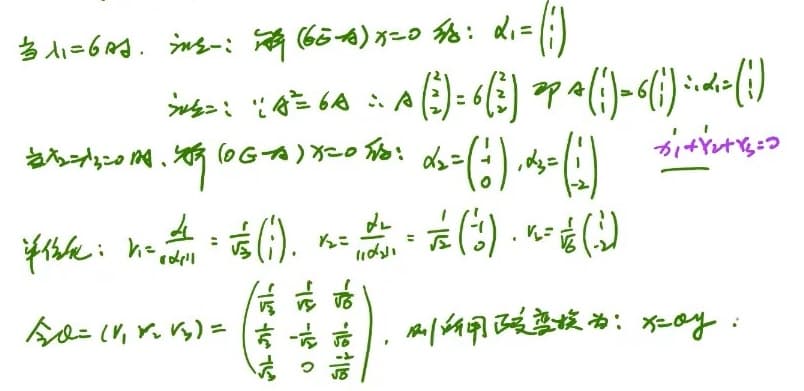 当 λ₁=6时. 法一: 解 (6E-A)x=0 得: α₁=(1 1 1)
法二: ∵ A²=6A ∴ A(2 2 2)=6(2 2 2) 即 A(1 1 1)=6(1 1 1) ∴ α₁=(1 1 1)
当λ₂=λ₃=0时, 解 (0E-A)x=0 得: α₂=(1 -1 0), α₃=(1 1 -2) x₁+x₂+x₃=0
单位化: r₁=α₁/||α₁||=1/√3(1 1 1), r₂=α₂/||α₂||=1/√2(1 -1 0), r₂=1/√6(1 1 -2)
令Q=(r₁ r₂ r₃)=(1/√3 1/√2 1/√6 1/√3 -1/√2 1/√6 1/√3 0 -2/√6), 则所用正交变换为: x=Qy :